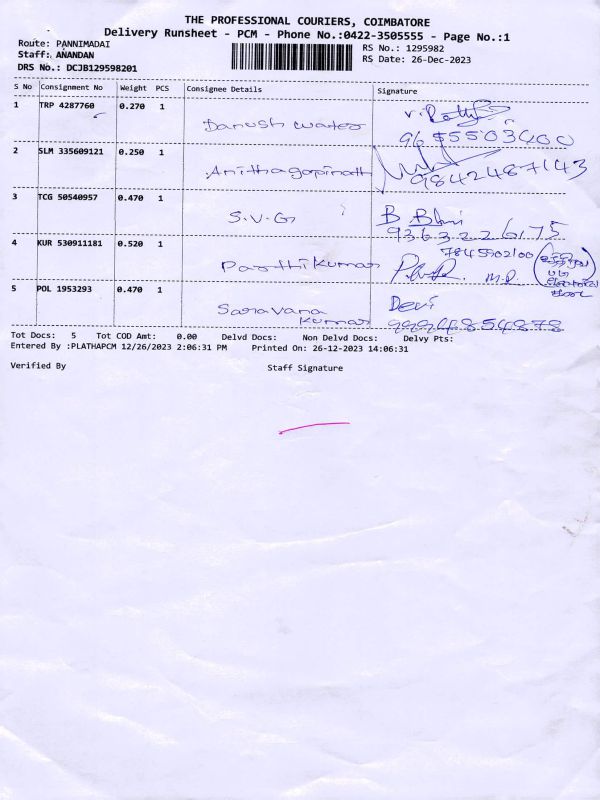 THE PROFESSIONAL COURIERS, COIMBATORE
Delivery Runsheet - PCM - Phone No.:0422-3505555 - Page No.:1
Route: PANNIMADAI
RS No.: 1295982
Staff: ANANDAN
RS Date: 26-Dec-2023
DRS No.: DCJB129598201
S No Consignment No Weight PCS Consignee Details Signature
1 TRP 4287760 0.270 1
Danush water
2 SLM 335609121 0.250 1
Anithagopinath 9842487143
3 TCG 50540957 0.470 1
S.V.G B
9363226175
4 KUR 530911181 0.520 1 7845502100
Parthikumar M.D
5 POL 1953293 0.470 1 Devi
Saravana
Kumar 9994854878
Tot Docs: 5 Tot COD Amt: 0.00 Delvd Docs: Non Delvd Docs: Delvy Pts:
Entered By :PLATHAPCM 12/26/2023 2:06:31 PM Printed On: 26-12-2023 14:06:31
Verified By Staff Signature